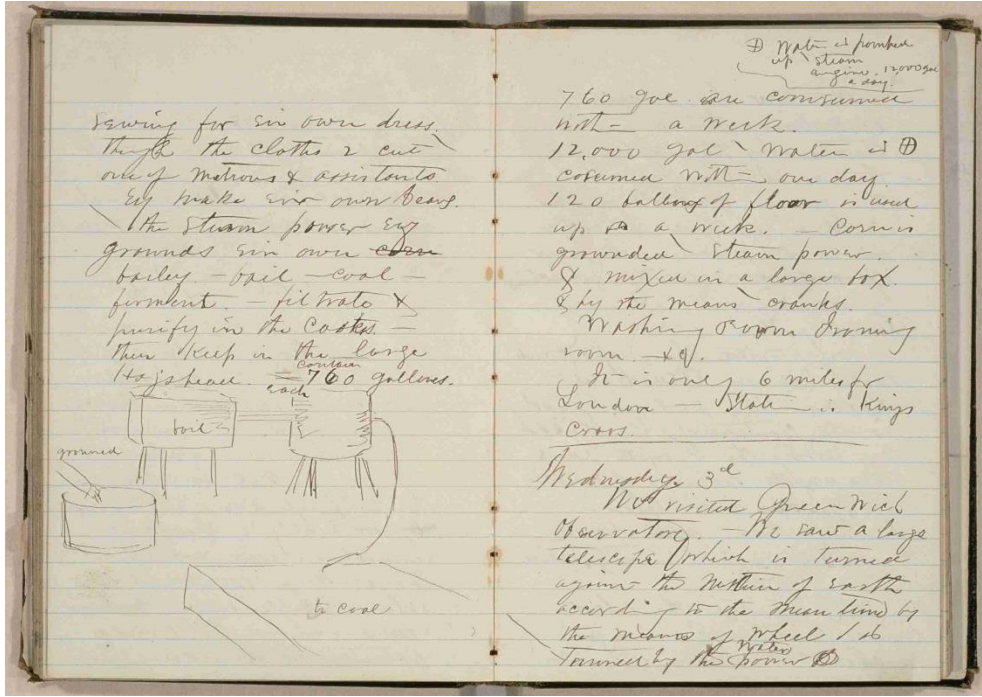 sewing for eir own dress.
though the cloths r cut
one of matrons & assistants
Ey make eir own bearg.
\ the steam power Ey
grounds eir own corn
barley - boil - coal -
ferment. - filtrate &
purify in the casks. -
then keep in the large
contain
Hogshead. = 760 gallons.
each
boil
grouned
to cool
⊕ Water is pomked
up \ steam
engine. 12,000 gal
a day.
760 gal. are comsumed
with- a week.
12,000 gal \ Water is ⊕
cosumed with- one day.
120 of floor is used
up a week. - Corn is
grounded \ steam power.
& mixed in a large box.
& by the means \ cranks.
Washing room Droning
room. - &c.
It is only 6 miles fr
London - Stati- is Kings
Cross.
Wednesday 3d
We visited Greenwich
Observatory. - We saw a large
telescope (which is turned
against the motion of Earth
according to the mean time by
the means of wheel
Water
tourned by the power